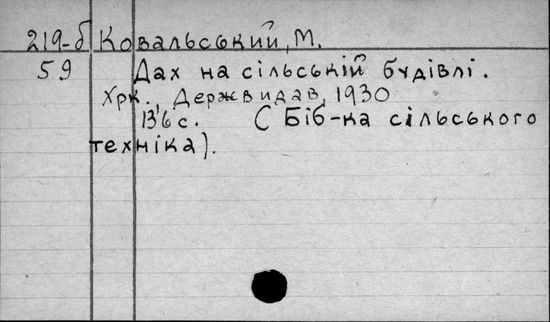 219-б Ковальський, М.
59 Дах на сільській будівлі.
Хрк., Держвидав, 1930
136 с. (Біб-ка сільського
техніка).